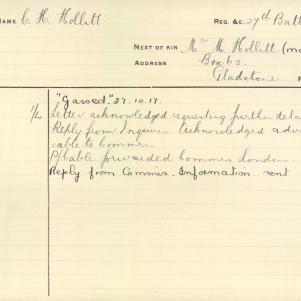 NAME C. H. Hollitt REG. &C. 27th Batt
NEXT OF KIN Mrs M. Hollitt (mo
ADDRESS Box 63.
Gladstone
"Gassed." 27.10.17.
Letter acknowledged requesting further deta
Reply from Inquirer. Acknowledged adv
cable to Commrs.
P/Cable forwarded Commrs London.
Reply from Commis. Information sent